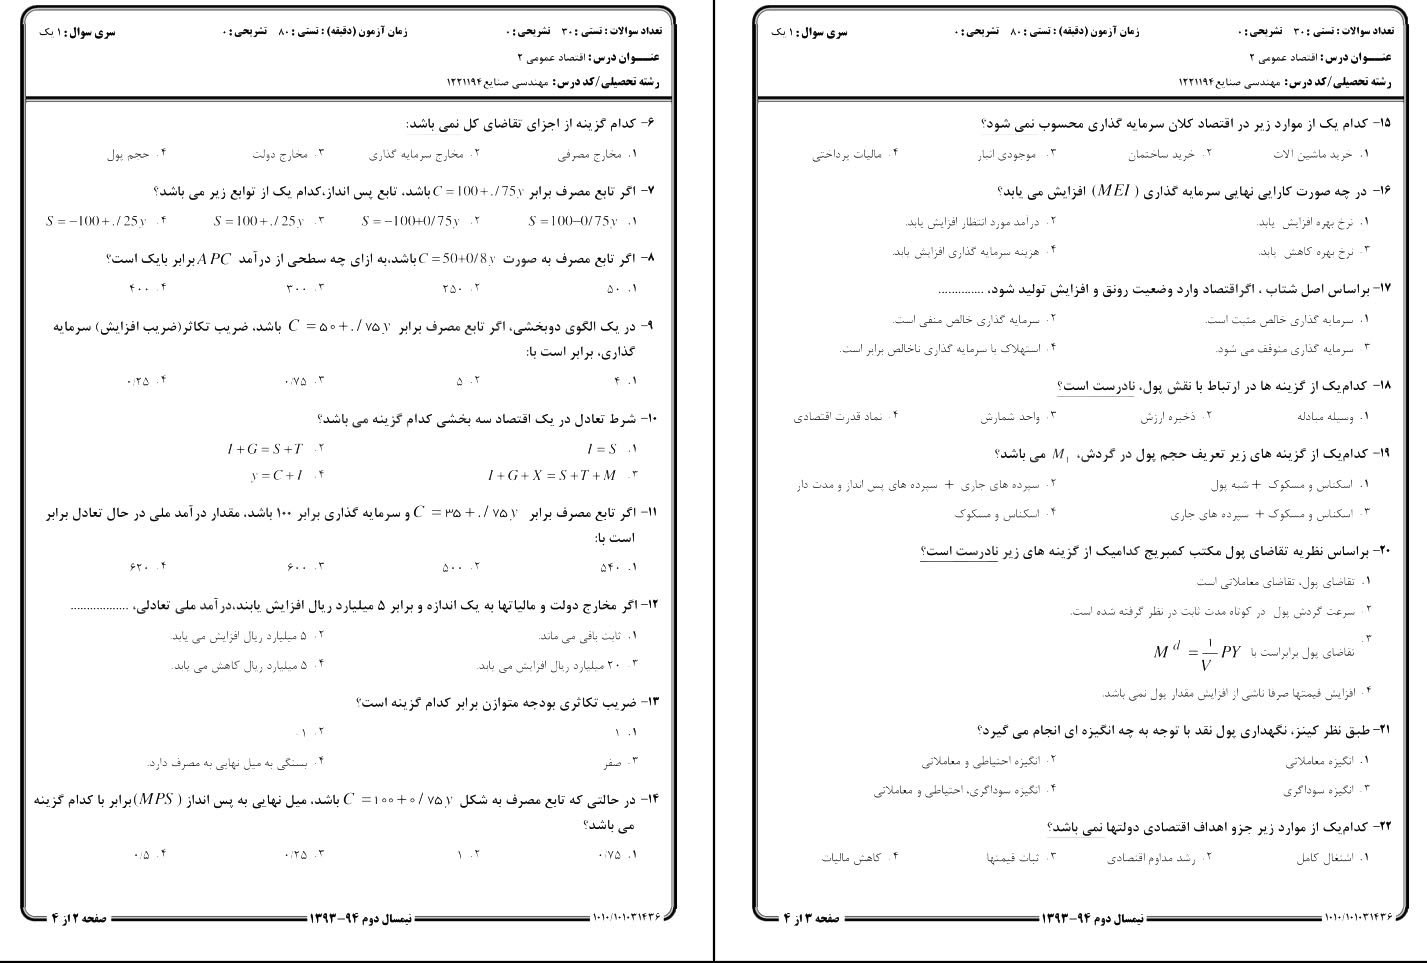 تعداد سوالات : تستی : ۳۰ تشریحی : ۰ زمان آزمون (دقیقه) : تستی : ۸۰ تشریحی : ۰ سری سوال : ۱ یک
عنـــوان درس : اقتصاد عمومی ۲
رشته تحصیلی/کد درس : مهندسی صنایع ۱۲۲۱۱۹۴
۶- کدام گزینه از اجزای تقاضای کل نمی باشد:
۱. مخارج مصرفی ۲. مخارج سرمایه گذاری ۳. مخارج دولت ۴. حجم پول
۷- اگر تابع مصرف برابر C = 100 + ./75y باشد، تابع پس انداز،کدام یک از توابع زیر می باشد؟
۱. S = 100−0/75y ۲. S = −100+0/75y ۳. S = 100 + ./25y ۴. S = −100 + ./25y
۸- اگر تابع مصرف به صورت C = 50+0/8y باشد،به ازای چه سطحی از درآمد APC برابر بایک است؟
۱. ۵۰ ۲. ۲۵۰ ۳. ۳۰۰ ۴. ۴۰۰
۹- در یک الگوی دوبخشی، اگر تابع مصرف برابر C = ۵۰ + ./۷۵y باشد، ضریب تکاثر(ضریب افزایش) سرمایه
گذاری، برابر است با:
۱. ۴ ۲. ۵ ۳. ۰/۷۵ ۴. ۰/۲۵
۱۰- شرط تعادل در یک اقتصاد سه بخشی کدام گزینه می باشد؟
۱. I = S ۲. I + G = S + T
۳. I + G + X = S + T + M ۴. y = C + I
۱۱- اگر تابع مصرف برابر C = ۳۵ + ./۷۵y و سرمایه گذاری برابر ۱۰۰ باشد، مقدار درآمد ملی در حال تعادل برابر
است با:
۱. ۵۴۰ ۲. ۵۰۰ ۳. ۶۰۰ ۴. ۶۲۰
۱۲- اگر مخارج دولت و مالیاتها به یک اندازه و برابر ۵ میلیارد ریال افزایش یابند،درآمد ملی تعادلی، ..................
۱. ثابت باقی می ماند. ۲. ۵ میلیارد ریال افزایش می یابد.
۳. ۲۰ میلیارد ریال افزایش می یابد. ۴. ۵ میلیارد ریال کاهش می یابد.
۱۳- ضریب تکاثری بودجه متوازن برابر کدام گزینه است؟
۱. ۱ ۲. ۱-
۳. صفر ۴. بستگی به میل نهایی به مصرف دارد.
۱۴- در حالتی که تابع مصرف به شکل C = ۱۰۰ + ۰/۷۵y باشد، میل نهایی به پس انداز (MPS) برابر با کدام گزینه
می باشد؟
۱. ۰/۷۵ ۲. ۱ ۳. ۰/۲۵ ۴. ۰/۵
۱۰۱۰/۱۰۱۰۳۱۴۳۶ نیمسال دوم ۹۴-۱۳۹۳ صفحه ۲ از ۴
تعداد سوالات : تستی : ۳۰ تشریحی : ۰ زمان آزمون (دقیقه) : تستی : ۸۰ تشریحی : ۰ سری سوال : ۱ یک
عنـــوان درس : اقتصاد عمومی ۲
رشته تحصیلی/کد درس : مهندسی صنایع ۱۲۲۱۱۹۴
۱۵- کدام یک از موارد زیر در اقتصاد کلان سرمایه گذاری محسوب نمی شود؟
۱. خرید ماشین آلات ۲. خرید ساختمان ۳. موجودی انبار ۴. مالیات پرداختی
۱۶- در چه صورت کارایی نهایی سرمایه گذاری (MEI) افزایش می یابد؟
۱. نرخ بهره افزایش یابد. ۲. درآمد مورد انتظار افزایش یابد.
۳. نرخ بهره کاهش یابد. ۴. هزینه سرمایه گذاری افزایش یابد.
۱۷- براساس اصل شتاب ، اگراقتصاد وارد وضعیت رونق و افزایش تولید شود، ..............
۱. سرمایه گذاری خالص مثبت است. ۲. سرمایه گذاری خالص منفی است.
۳. سرمایه گذاری متوقف می شود. ۴. استهلاک با سرمایه گذاری ناخالص برابر است.
۱۸- کدام‌یک از گزینه ها در ارتباط با نقش پول، نادرست است؟
۱. وسیله مبادله ۲. ذخیره ارزش ۳. واحد شمارش ۴. نماد قدرت اقتصادی
۱۹- کدام‌یک از گزینه های زیر تعریف حجم پول در گردش، M۱ می باشد؟
۱. اسکناس و مسکوک + شبه پول ۲. سپرده های جاری + سپرده های پس انداز و مدت دار
۳. اسکناس و مسکوک + سپرده های جاری ۴. اسکناس و مسکوک
۲۰- براساس نظریه تقاضای پول مکتب کمبریج کدامیک از گزینه های زیر نادرست است؟
۱. تقاضای پول، تقاضای معاملاتی است
۲. سرعت گردش پول در کوتاه مدت ثابت در نظر گرفته شده است.
۳. تقاضای پول برابراست با M^d = ۱/V PY
۴. افزایش قیمتها صرفا ناشی از افزایش مقدار پول نمی باشد.
۲۱- طبق نظر کینز، نگهداری پول نقد با توجه به چه انگیزه ای انجام می گیرد؟
۱. انگیزه معاملاتی ۲. انگیزه احتیاطی و معاملاتی
۳. انگیزه سوداگری ۴. انگیزه سوداگری، احتیاطی و معاملاتی
۲۲- کدام‌یک از موارد زیر جزو اهداف اقتصادی دولتها نمی باشد؟
۱. اشتغال کامل ۲. رشد مداوم اقتصادی ۳. ثبات قیمتها ۴. کاهش مالیات
۱۰۱۰/۱۰۱۰۳۱۴۳۶ نیمسال دوم ۹۴-۱۳۹۳ صفحه ۳ از ۴